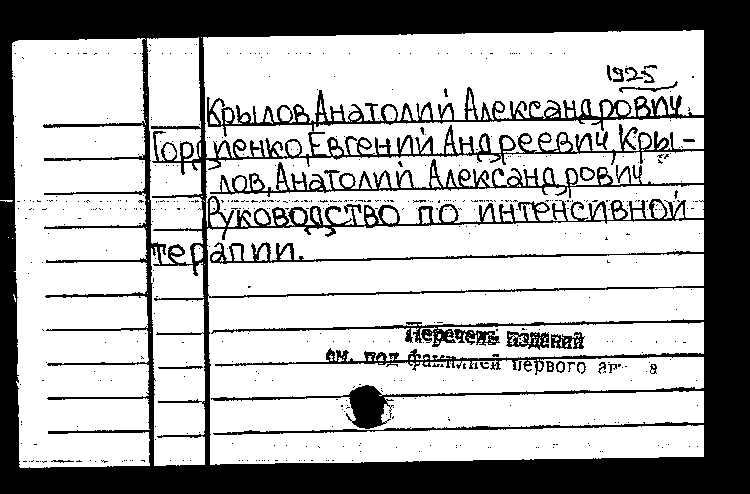 1925
Крылов, Анатолий Александрович.
Гордиенко, Евгений Андреевич, Кры-
лов, Анатолий Александрович.
Руководство по интенсивной
терапии.
Перечень изданий
см. под фамилией первого